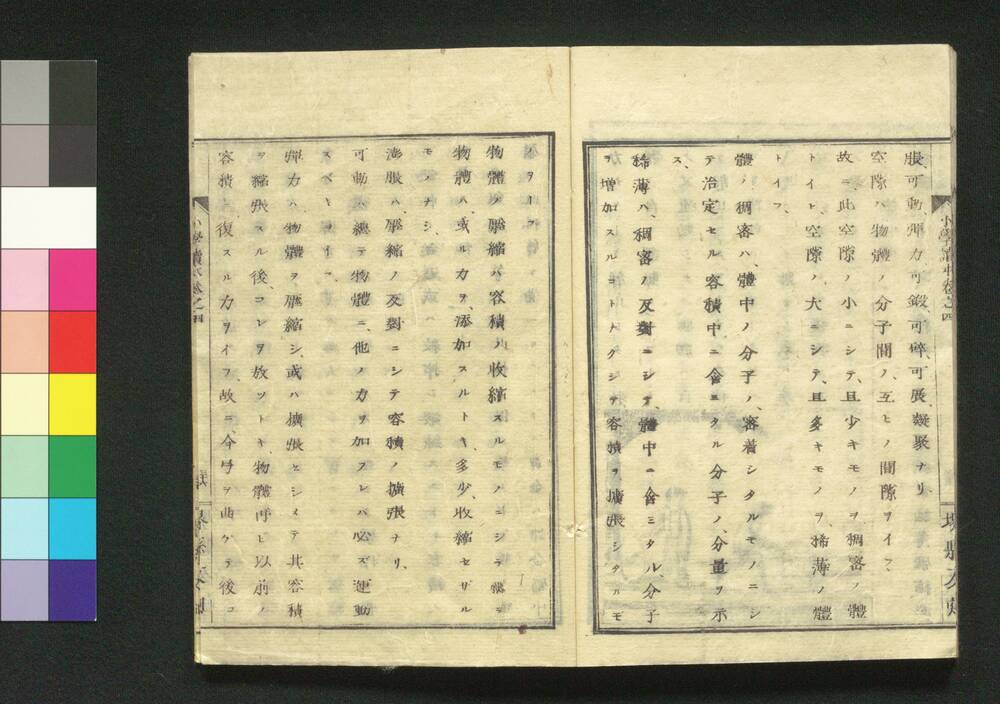 脹可動彈力可鍛、可碎、可展、凝聚ナリ
空隙ハ物體ノ分子間ノ、互ヒノ間隙ヲイフ、
故ニ此空隙ノ小ニシテ、且少キモノヲ稠密ノ體
トイヒ、空隙ノ大ニシテ、且多キモノヲ、稀薄ノ體
トイフ、
體ノ稠密ハ、體中ノ分子ノ、密着シタルモノニシ
テ治定セル容積中ニ含ミタル分子ノ、分量ヲ示
ス、
稀薄ハ、稠密ノ反對ニシテ體中ニ含ミタル、分子
ヲ増加スルコトナクシテ容積ヲ、擴張シタルモ
ノヲイフ
物體ノ壓縮ハ容積ノ收縮スルモノニシテ總テ
物體ハ、或ル力ヲ添加スルトキ、多少、收縮セザル
モノナシ、
澎脹ハ、壓縮ノ反對ニシテ容積ノ擴張ナリ、
可動ハ總テ物體ニ、他ノ力ヲ加フレバ必ズ運動
スベキヲイフ、
彈力ハ物體ヲ壓縮シ、或ハ擴張セシメテ其容積
ヲ縮張スル後、コレヲ放ツトキ、物體再ヒ以前ノ
容積ニ復スル力ヲイフ、故ニ、今弓ヲ曲ゲテ後コ
小學讀本卷之四